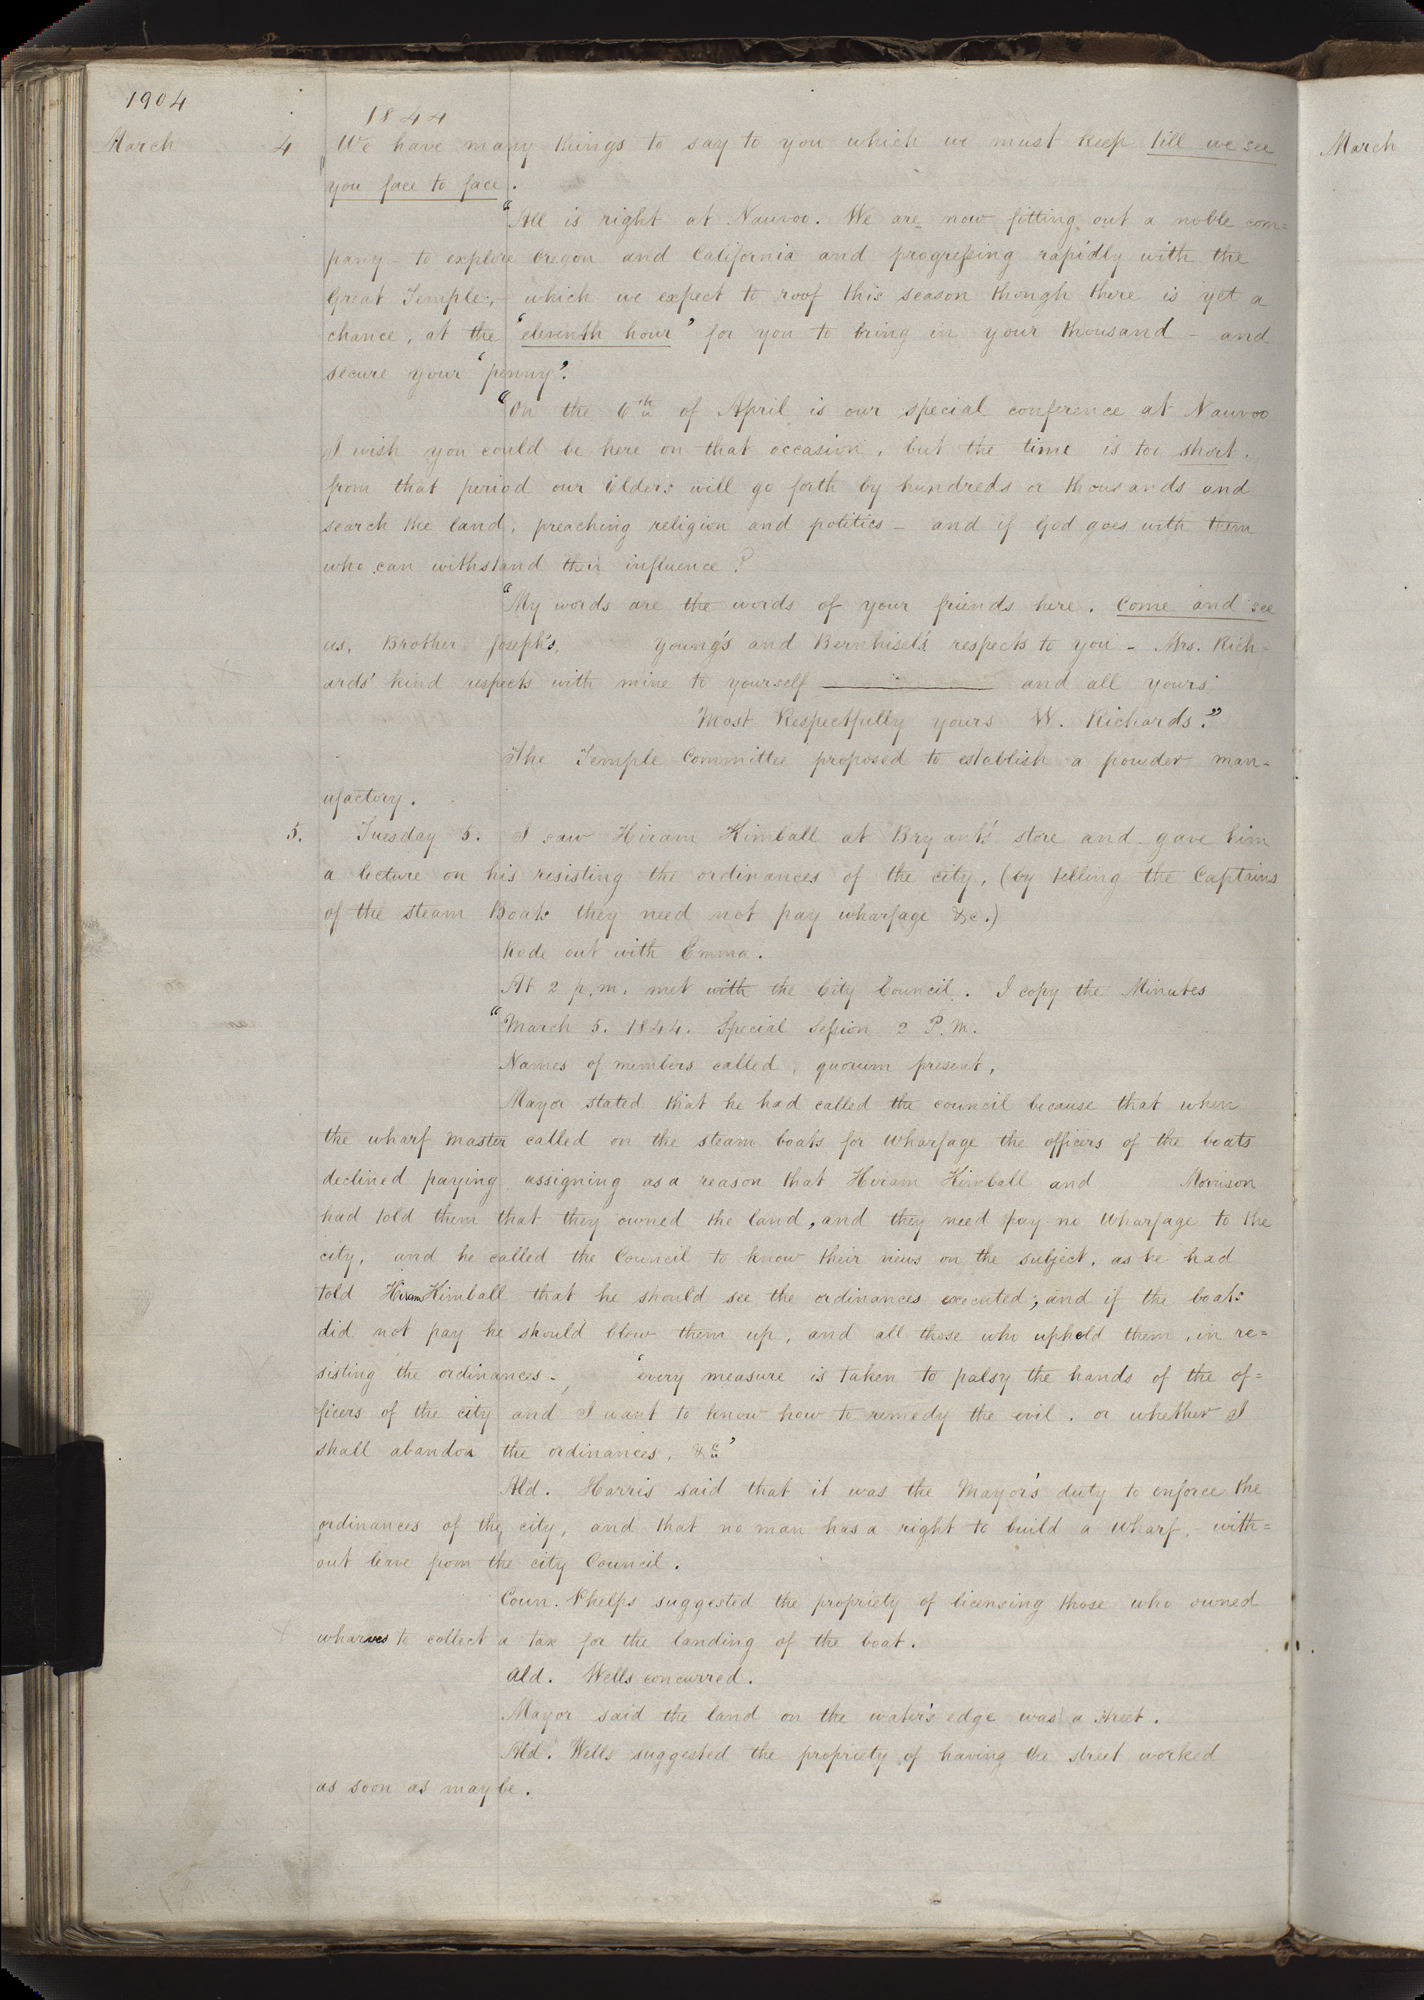 1904
1844
March 4 We have many things to say to you which we must keep till we see
you face to face.
"All is right at Nauvoo. We are now fitting out a noble com=
pany to explore Oregon and California and progressing rapidly with the
Great Temple, which we expect to roof this season though there is yet a
chance, at the 'eleventh hour' for you to bring in your thousand - and
secure your 'penny'.
"On the 6th of April is our special conference at Nauvoo
I wish you could be here on that occasion, but the time is too short.
from that period our Elders will go forth by hundreds or thousands and
search the land, preaching religion and politics - and if God goes with them
who can withstand their influence?
"My words are the words of your friends here. Come and see
us, Brother Joseph's, Young's and Bernhisel's respects to you - Mrs. Rich-
ards' kind respects with mine to yourself and all yours
Most Respectfully yours W. Richards."
The Temple Committee proposed to establish a powder man-
ufactory.
5. Tuesday 5. I saw Hiram Kimball at Bryant's store and gave him
a lecture on his resisting the ordinances of the city, (by telling the Captains
of the steam Boats they need not pay wharfage &c.)
Rode out with Emma.
At 2 p.m. met with the City Council. I copy the Minutes
"March 5. 1844. Special Session 2 P.M.
Names of members called, quorum present,
Mayor stated that he had called the council because that when
the wharf master called on the steam boats for wharfage the officers of the boats
declined paying assigning as a reason that Hiram Kimball and Morrison
had told them that they owned the land, and they need pay no wharfage to the
city, and he called the Council to know their views on the subject, as he had
told Hiram Kimball that he should see the ordinances executed; and if the boats
did not pay he should blow them up, and all those who uphold them, in re=
sisting the ordinances. 'every measure is taken to palsy the hands of the of=
ficers of the city and I want to know how to remedy the evil. or whether I
shall abandon the ordinances, &c'
Ald. Harris said that it was the Mayor's duty to enforce the
ordinances of the city, and that no man has a right to build a wharf, with=
out leave from the city Council.
Coun. Phelps suggested the propriety of licensing those who owned
wharves to collect a tax for the landing of the boat.
Ald. Wells concurred.
Mayor said the land on the water's edge was a street.
Ald. Wells suggested the propriety of having the street worked
as soon as may be.
March